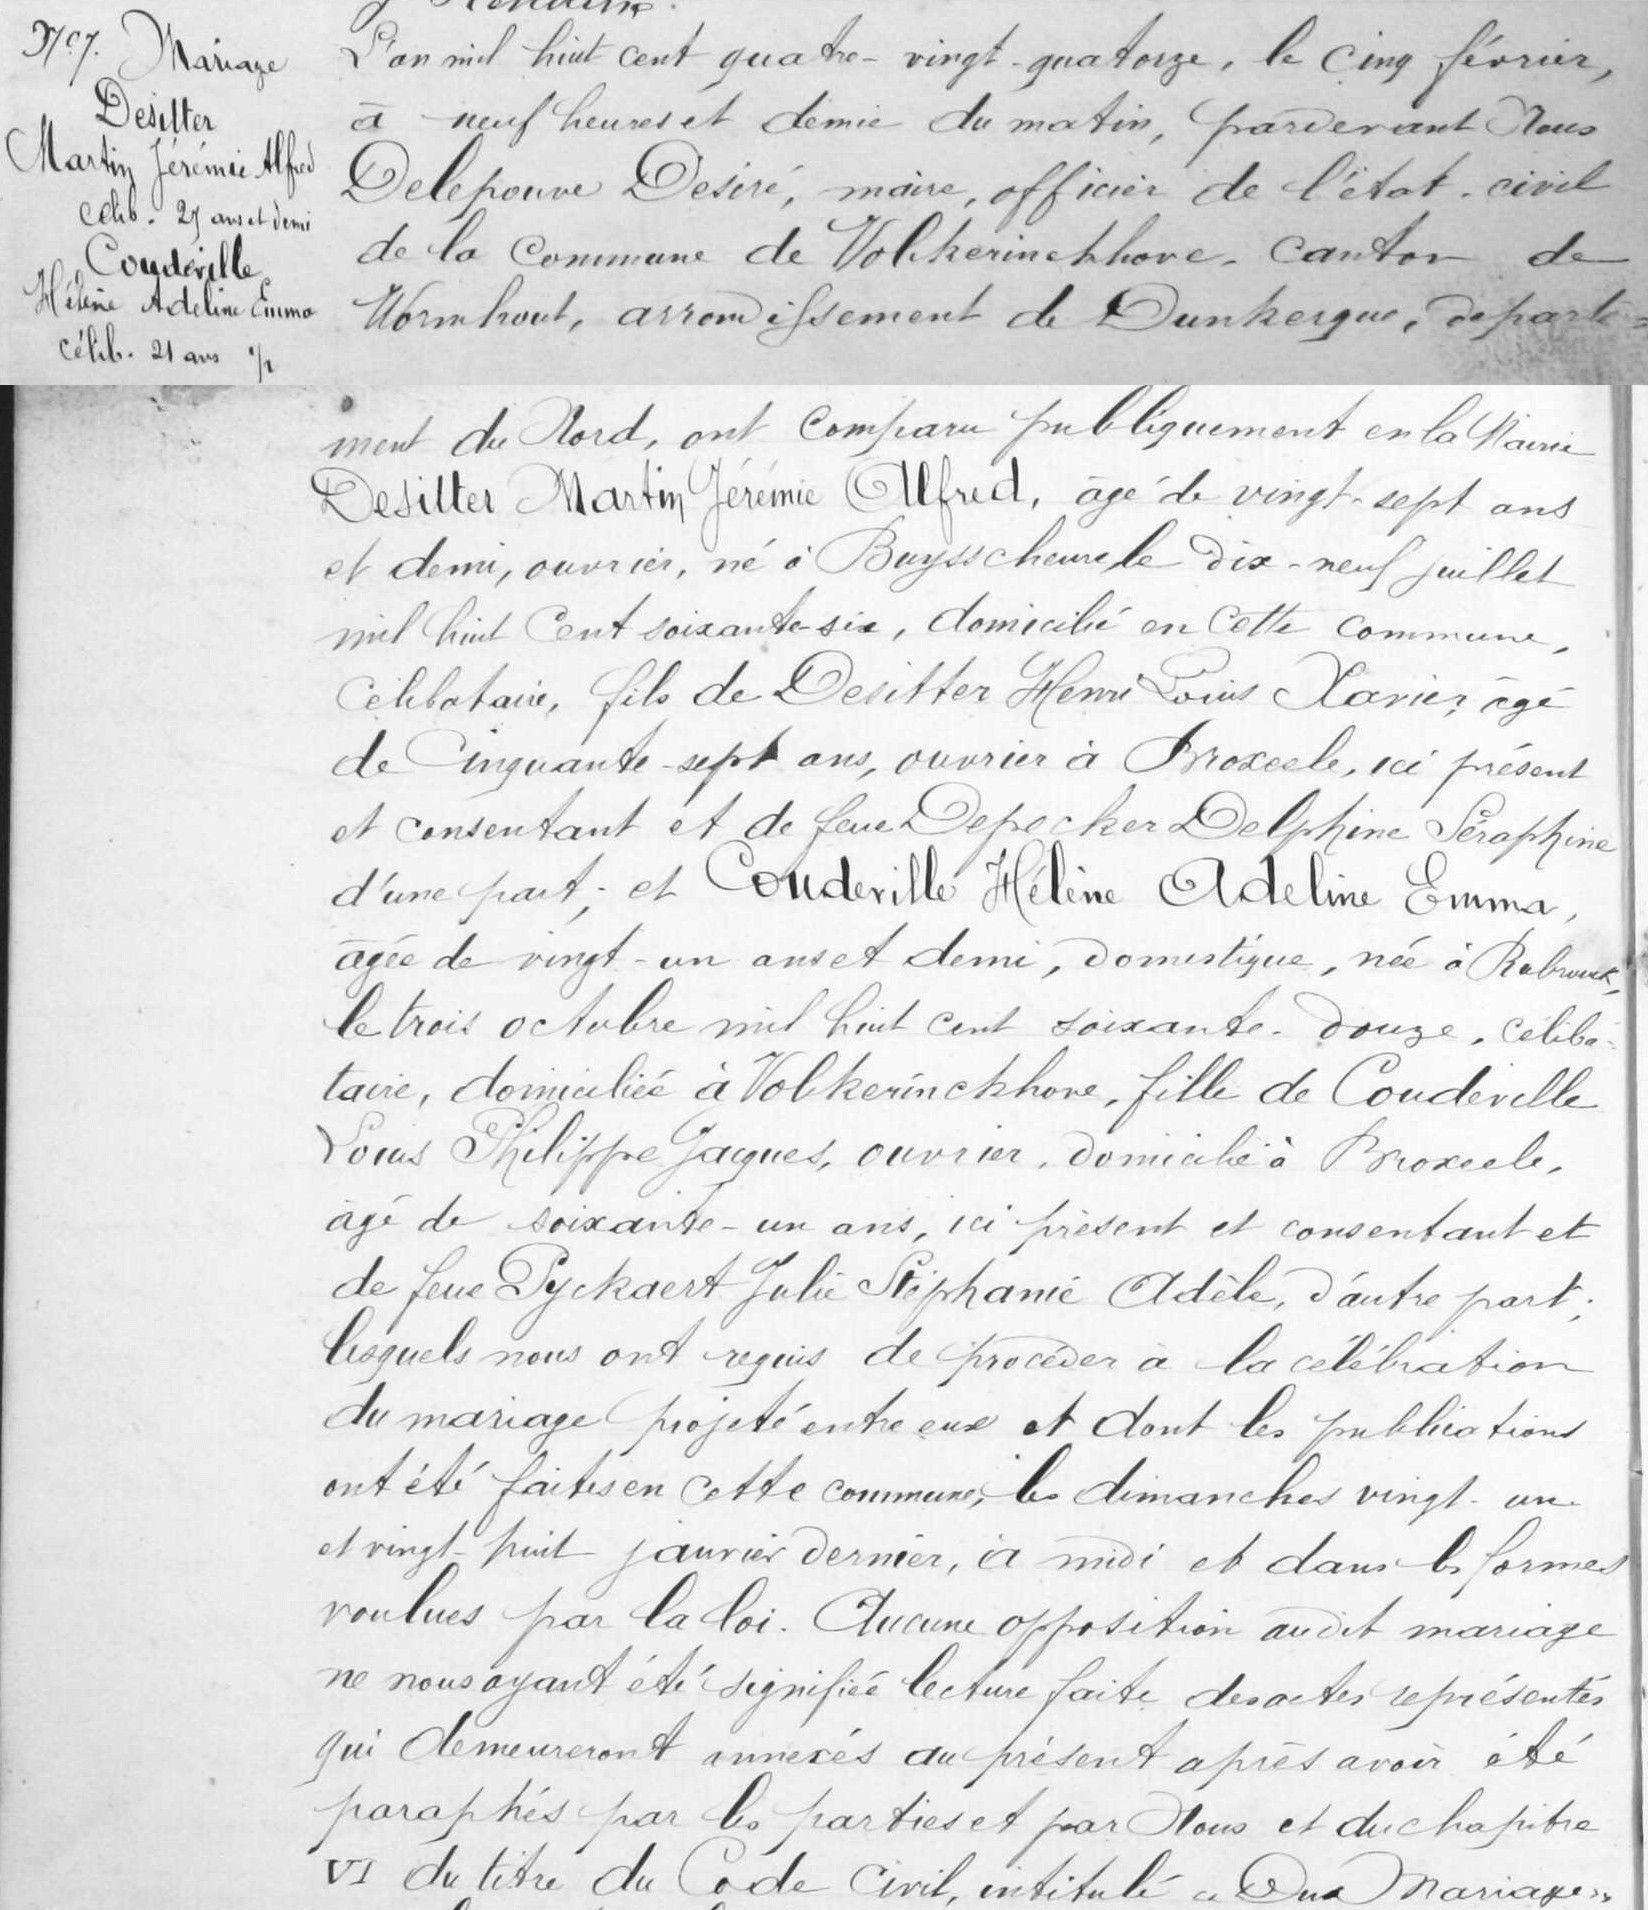 N° 7. Mariage
Desitter
Martin Jérémie Alfred
célib. 27 ans et demi
Coudeville
Hélène Adeline Emma
célib. 21 ans 1/2
L'an mil huit cent quatre-vingt-quatorze, le cinq février,
à neuf heures et demie du matin, pardevant Nous
Delepouve Desiré, maire, officier de l'état-civil
de la commune de Volkerinckhove, canton de
Wormhout, arrondissement de Dunkerque, departe-
ment du Nord, ont comparu publiquement en la Mairie
Desitter Martin Jérémie Alfred, âgé de vingt-sept ans
et demi, ouvrier, né à Buysscheure, le dix-neuf juillet
mil huit cent soixante-six, domicilié en cette commune,
célibataire, fils de Desitter Henri Louis Xavier, âgé
de cinquante-sept ans, ouvrier à Broxeele, ici présent
et consentant et de feue Depecker Delphine Séraphine
d'une part; et Coudeville Hélène Adeline Emma,
âgée de vingt-un ans et demi, domestique, née à Rubrouck,
le trois octobre mil huit cent soixante-douze, céliba-
taire, domiciliée à Volkerinckhove, fille de Coudeville
Louis Philippe Jacques, ouvrier, domicilié à Broxeele,
âgé de soixante-un ans, ici présent et consentant et
de feue Pyckaert Julie Stéphanie Adèle, d'autre part;
lesquels nous ont requis de procéder à la célébration
du mariage projeté entre eux et dont les publications
ont été faites en cette commune, les dimanches vingt-un
et vingt-huit janvier dernier, à midi et dans les formes
voulues par la loi. Aucune opposition audit mariage
ne nous ayant été signifiée lecture faite des actes représentés
qui demeureront annexés au présent après avoir été
paraphés par les parties et par Nous et du chapitre
VI du titre du Code Civil, intitulé « Du Mariage »